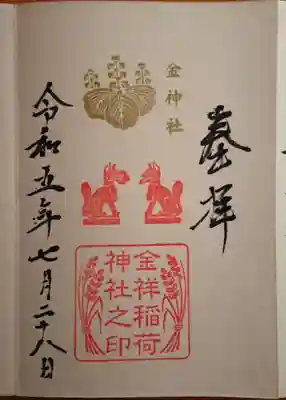 奉拝
金神社
金祥稲荷
神社之印
令和五年七月二十八日